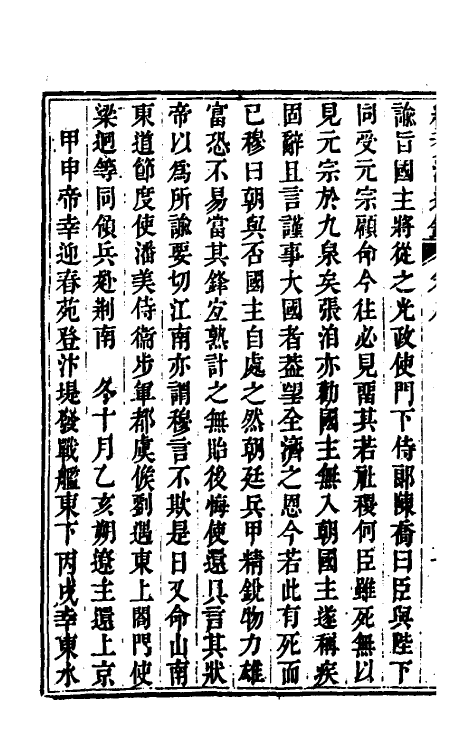 諭旨國主將從之光政使門下侍郎陳喬曰臣與陛下
同受元宗顧命今往必見畱其若社稷何臣雖死無以
見元宗於九泉矣張洎亦勸國主無入朝國主遂稱疾
固辭且言謹事大國者葢望全濟之恩今若此有死而
已穆曰朝與否國主自處之然朝廷兵甲精銳物力雄
富恐不易當其鋒宜熟計之無貽後悔使還具言其狀
帝以爲所諭要切江南亦謂穆言不欺是日又命山南
東道節度使潘美侍衞步軍都虞候劉遇東上閤門使
梁迥等同領兵赴荆南　冬十月乙亥朔遼主還上京
甲申帝幸迎春苑登汴堤發戰艦東下丙戌幸東水